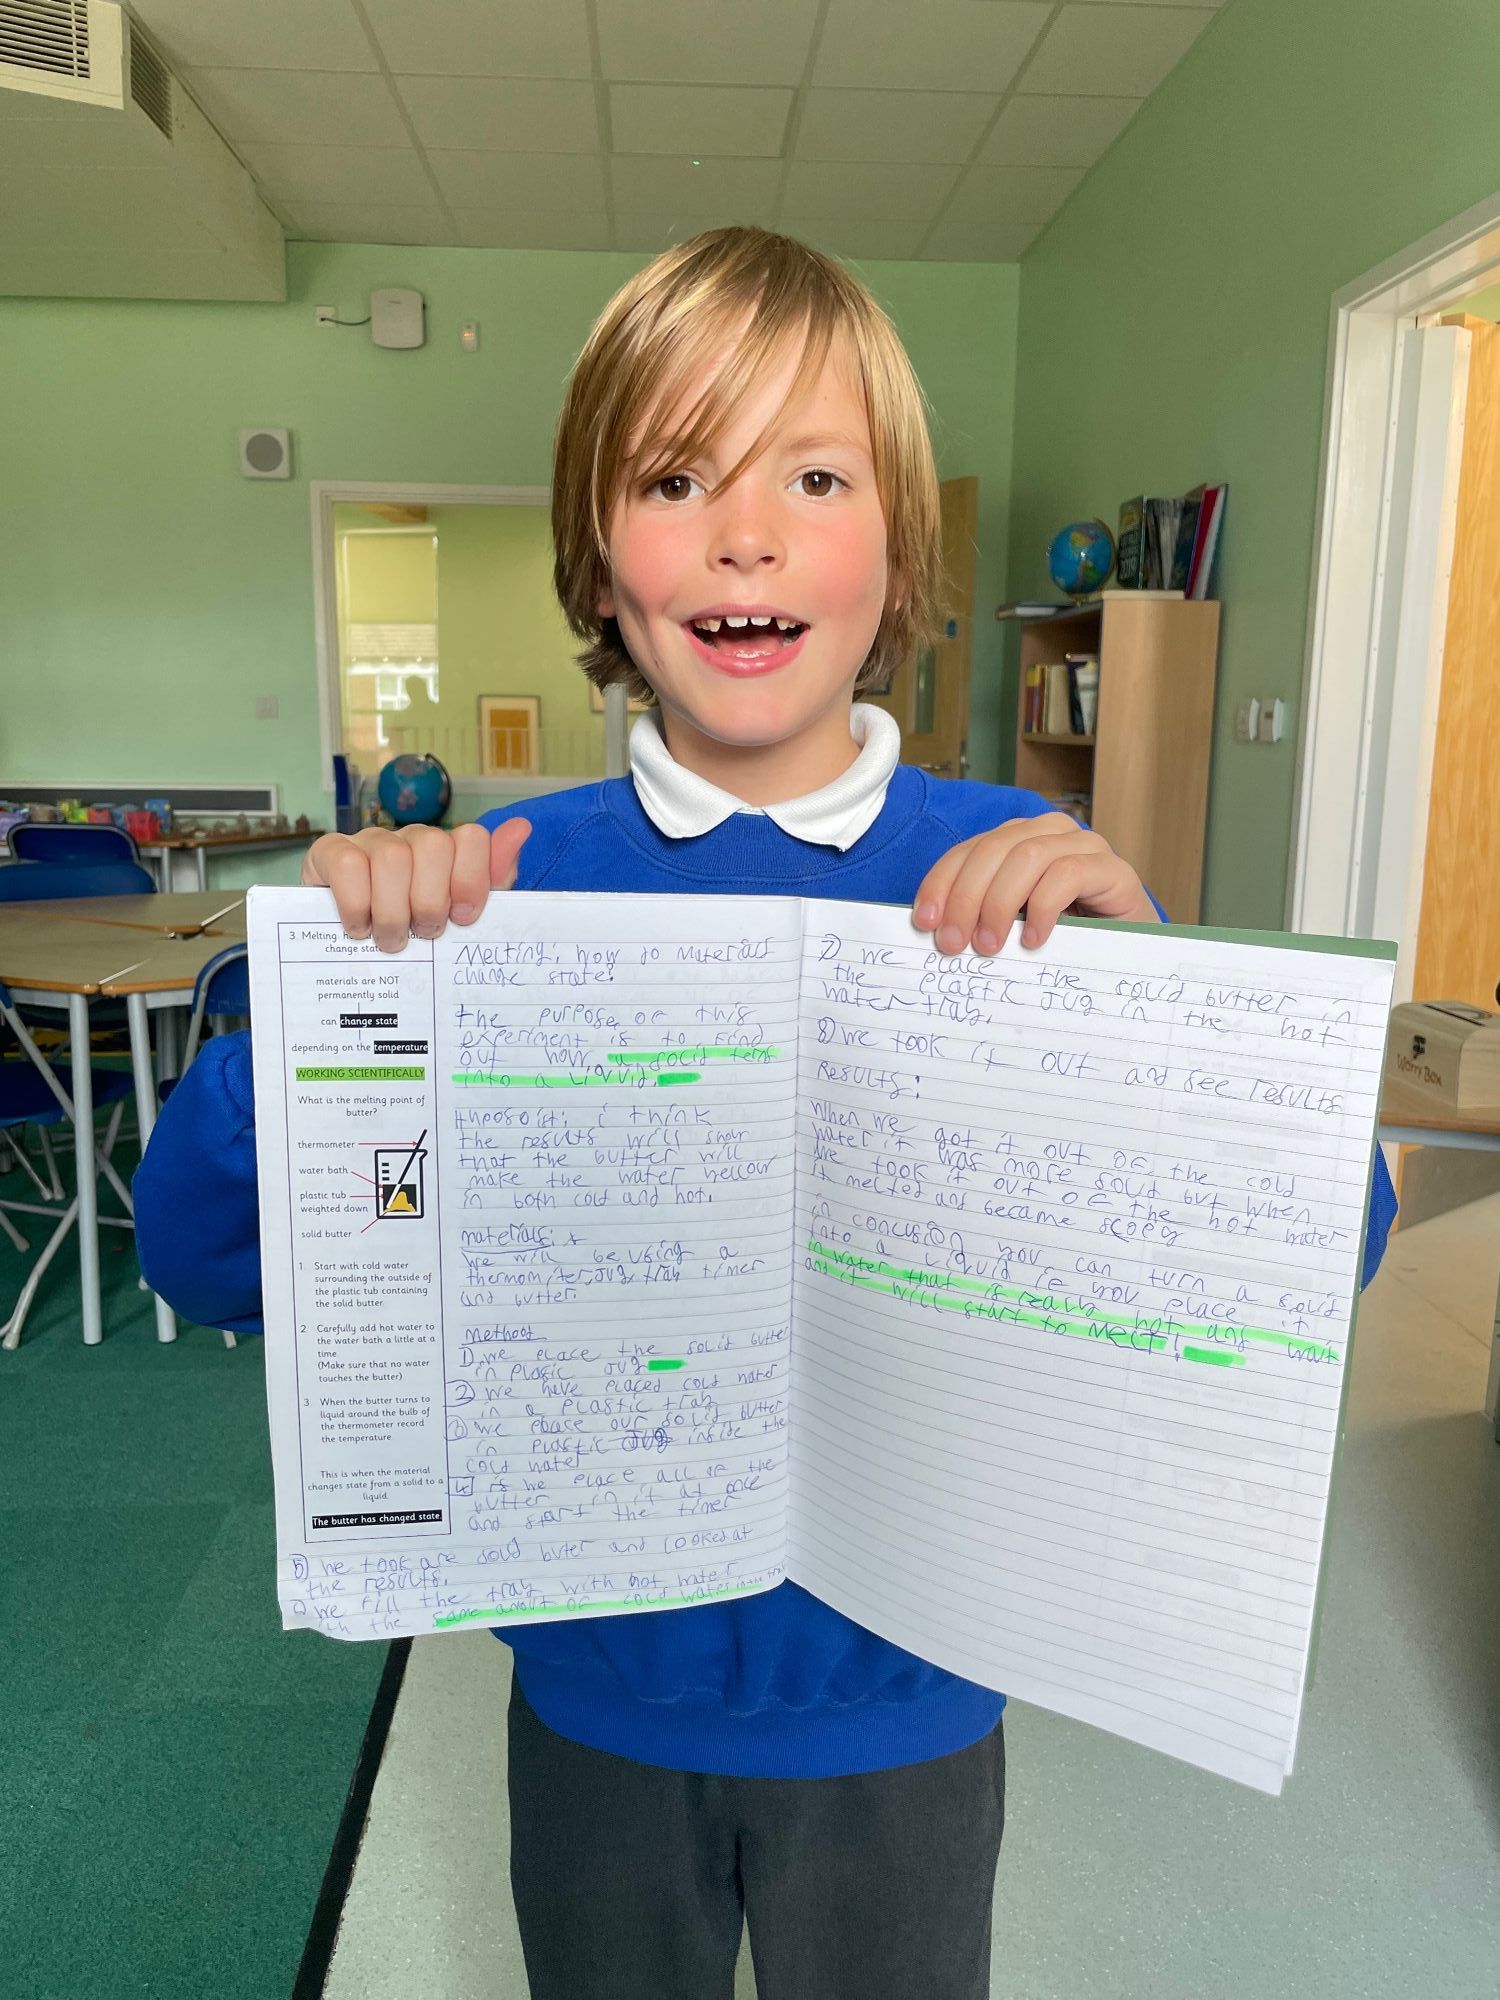 3 Melting.
change state
materials are NOT
permanently solid
can change state
depending on the temperature
WORKING SCIENTIFICALLY
What is the melting point of
butter?
thermometer
water bath
plastic tub
weighted down
solid butter
1. Start with cold water
surrounding the outside of
the plastic tub containing
the solid butter
2. Carefully add hot water to
the water bath a little at a
time
(Make sure that no water
touches the butter)
3 When the butter turns to
liquid around the bulb of
the thermometer record
the temperature
This is when the material
changes state from a solid to a
liquid.
The butter has changed state.
Melting: how do Materials
change state?
the purpose of this
experiment is to find
out how a solid terns
into a Liquid.
i think
the results will show
that the butter will
make the water yellow
in both cold and hot.
materials:
We will be using a
tray timer
and butter.
Method
1) we place the solid butter
in plasic jug
2) we have placed cold water
in a plastic tray
3) we place our solid butter
in plastic jug inside the
cold water
4 is we place all of the
butter in it at once
and start the timer
5) we took are solid buter and looked at
the results.
we fill the tray with hot water
the same amout of cold water in the
7) we place the solid butter in
the plastic jug in the hot
water tray.
8) we took it out and see results
Results:
When we got it out of the cold
water it was more solid but when
we took it out of the hot water
it melted and became
in concusion you can turn a solid
into a Liquid if you place it
in water that is really hot and wait
and it will start to Melt!
Worry Box